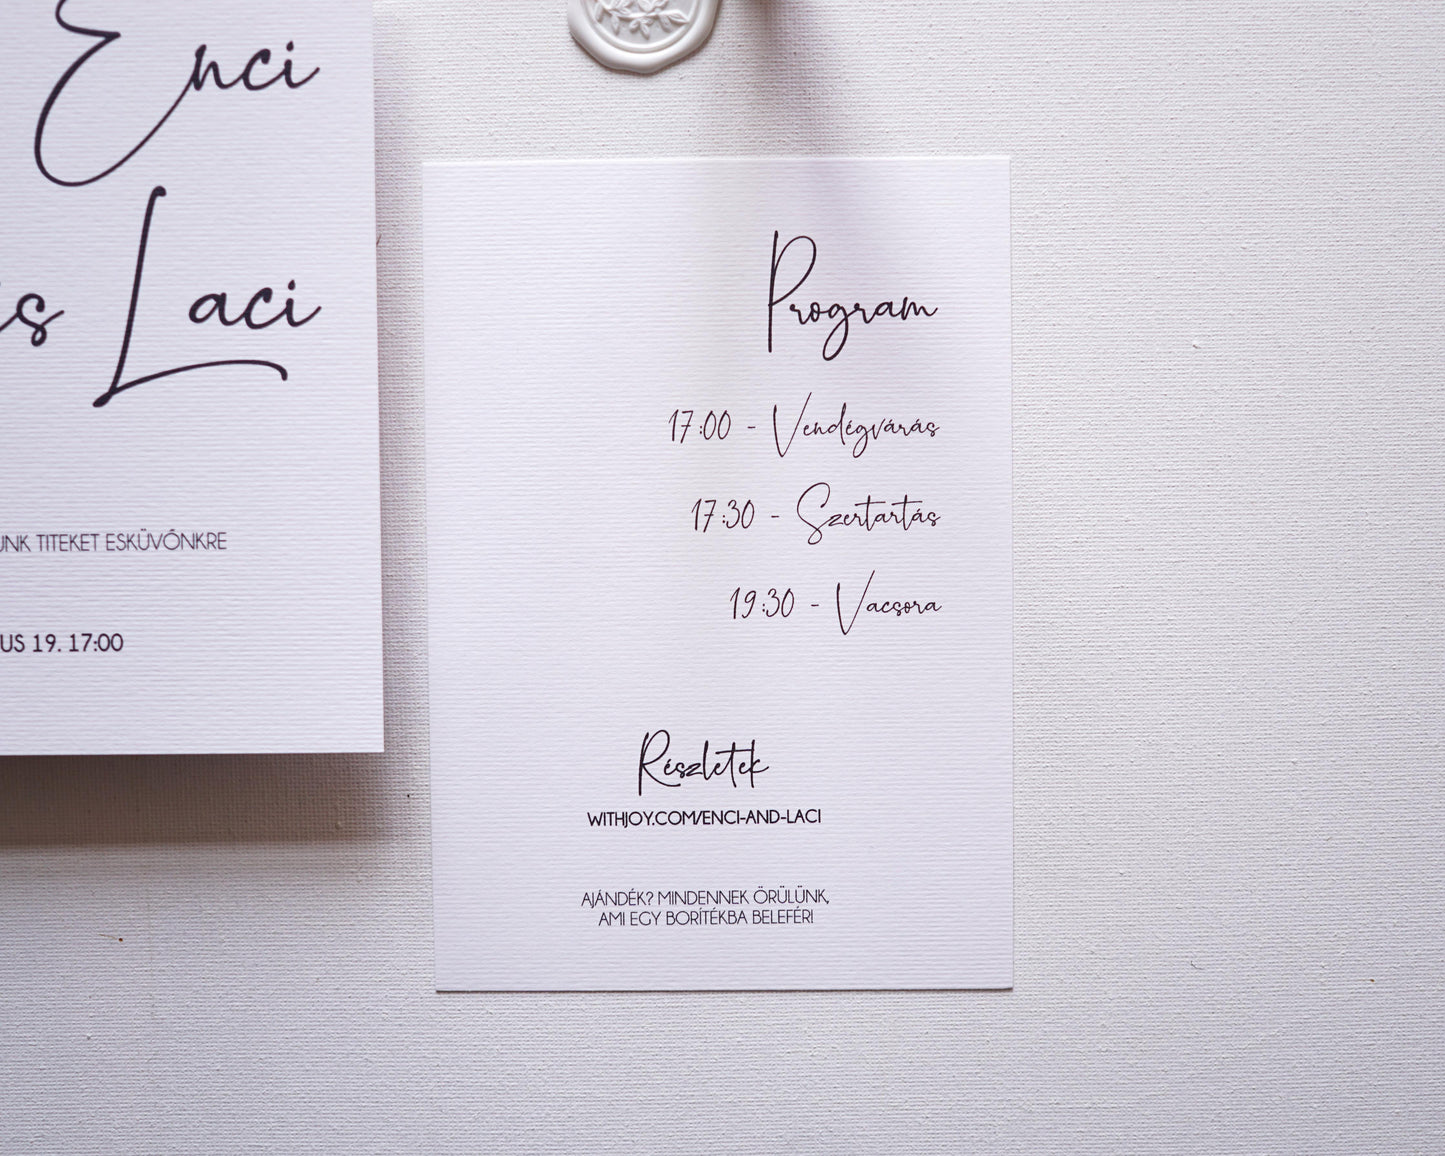 Enci
és Laci
TITEKET ESKÜVŐNKRE
19. 17:00
Program
17:00 - Vendégvárás
17:30 - Szertartás
19:30 - Vacsora
Részletek
WITHJOY.COM/ENCI-AND-LACI
AJÁNDÉK? MINDENNEK ÖRÜLÜNK,
AMI EGY BORÍTÉKBA BELEFÉR!